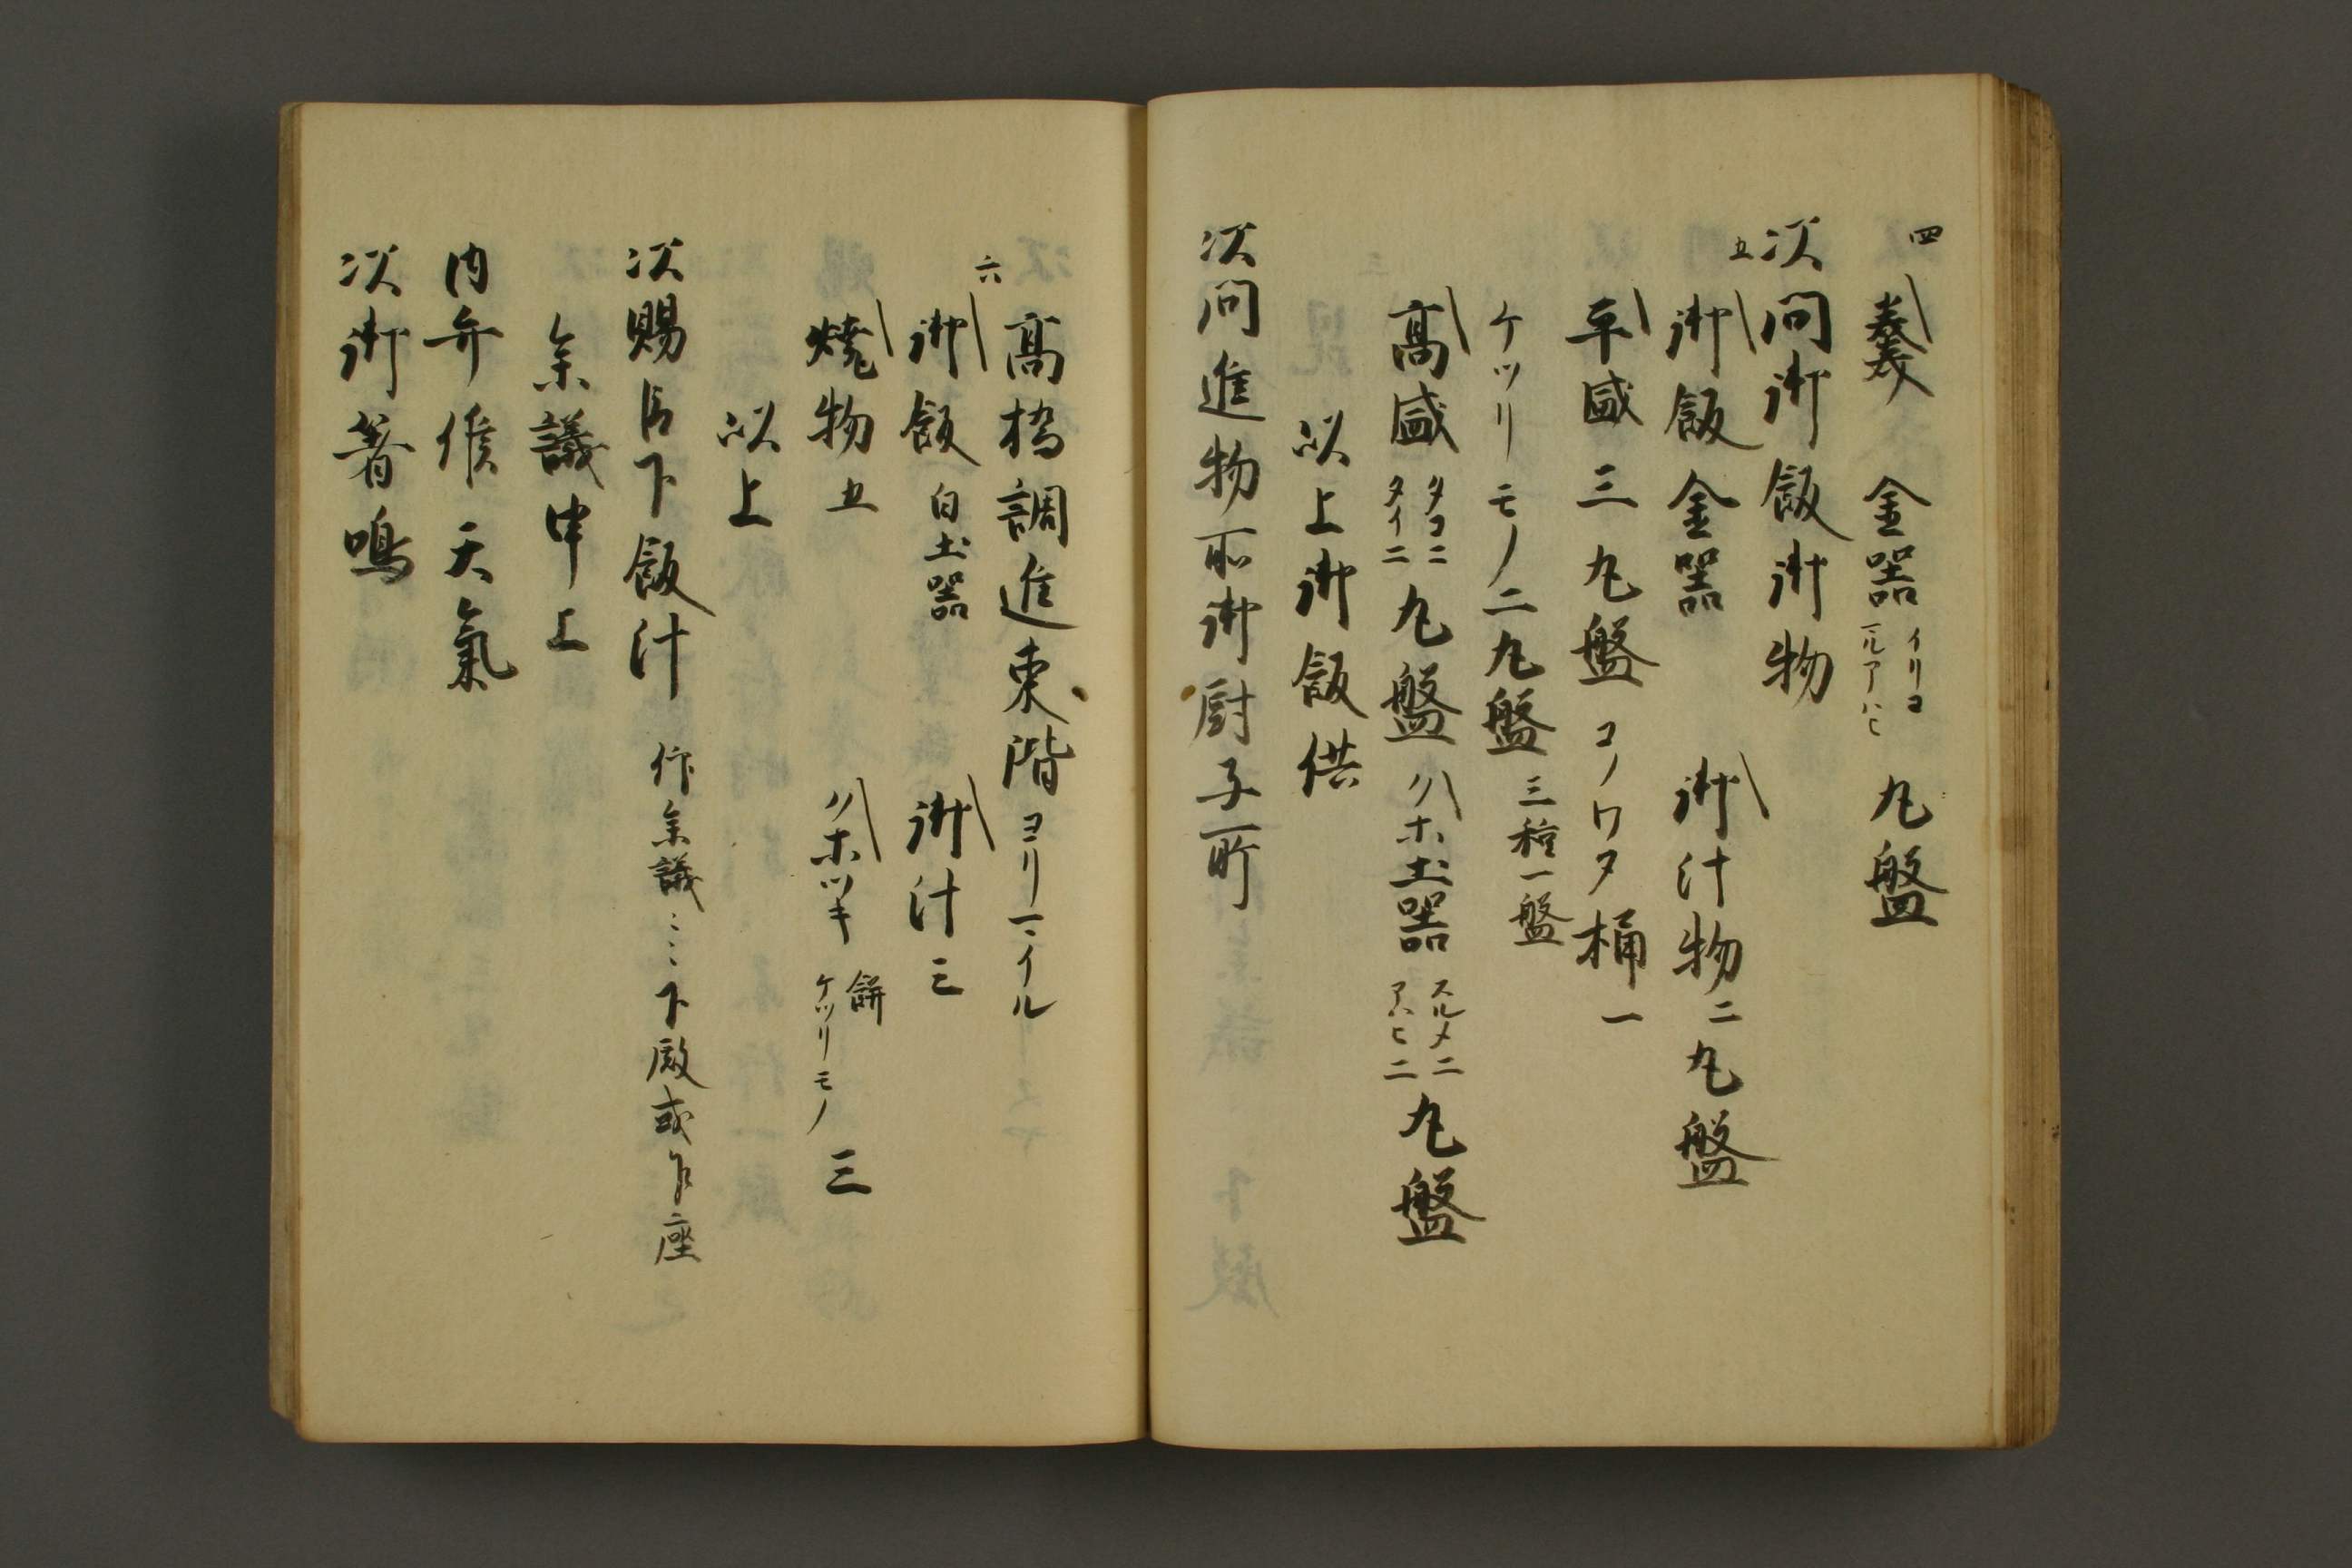 四
羹 金器 イリコ 丸盤
次問御飯御物
五
御飯金器 御汁物二丸盤
平盛三丸盤 コノワタ桶一
ケツリモノ二丸盤 三種一盤
高盛 タコ二 タイ二 丸盤 ハホ土器 スルメ二 アハヒ二 丸盤
以上御飯供
次問進物所御厨子所
六
高橋調進東階ヨリマイル
御飯 白土器 御汁三
焼物五 ハホツキ 餅 ケツリモノ 三
以上
次賜臣下飯汁 仰参議ミミ下殿或乍座
参議申上
内弁候天氣
次御箸鳴